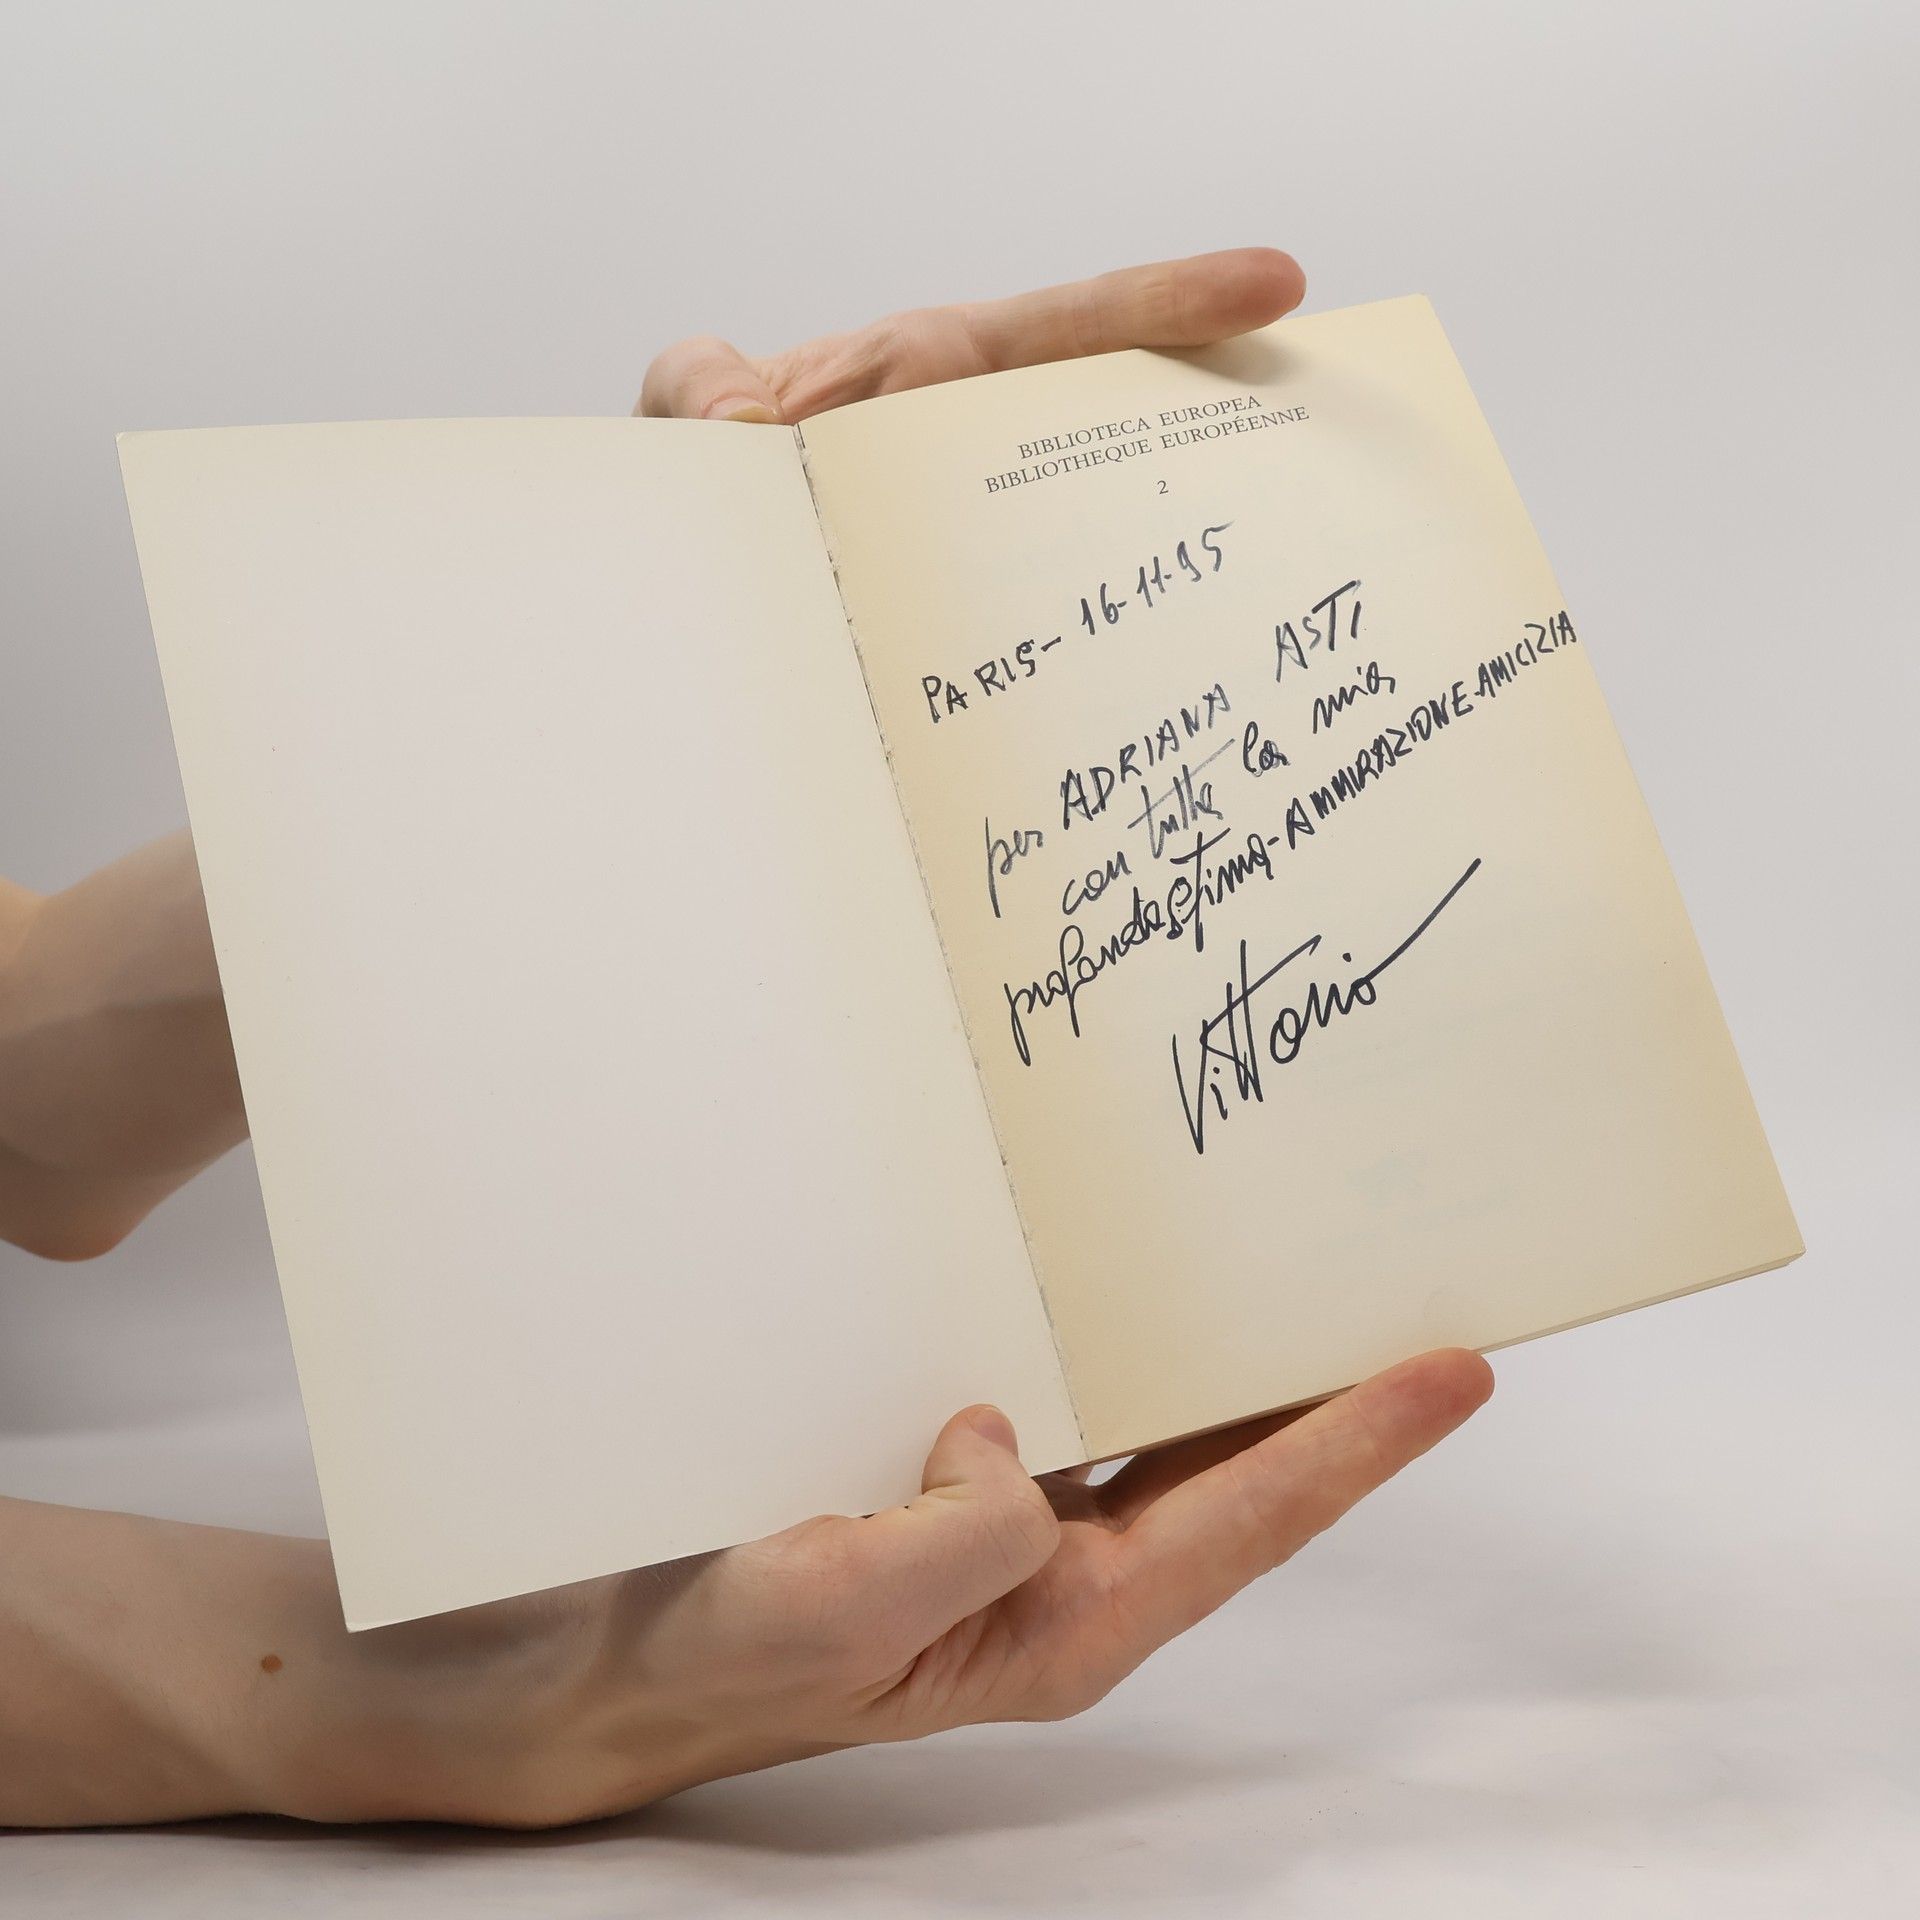 BIBLIOTECA EUROPEA
BIBLIOTHEQUE EUROPÉENNE
2
PARIS - 16-11-95
per ADRIANA ASTI
con tutta la mia
profonda stima - AMMIRAZIONE - AMICIZIA
Vittorio